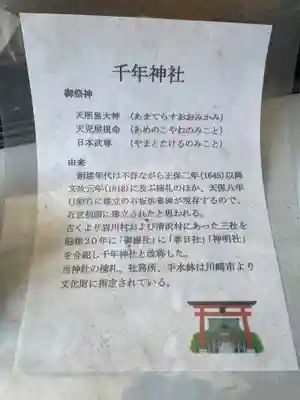 千年神社
御祭神
天照皇大神 (あまてらすおおみかみ)
天児屋根命 (あめのこやねのみこと)
日本武尊 (やまとたけるのみこと)
由来
創建年代は不詳ながら正保二年(1645)以降
文政元年(1818)に及ぶ棟札のほか、天保八年
(1837)に建立の石坂供養碑が現存するので、
近世初頭に建立されたと思われる。
古くより岩川村および清沢村にあった三社を
昭和20年に「御嶽社」に「春日社」「神明社」
を合祀し千年神社と改称した。
当神社の棟札、社務所、手水鉢は川崎市より
文化財に指定されている。